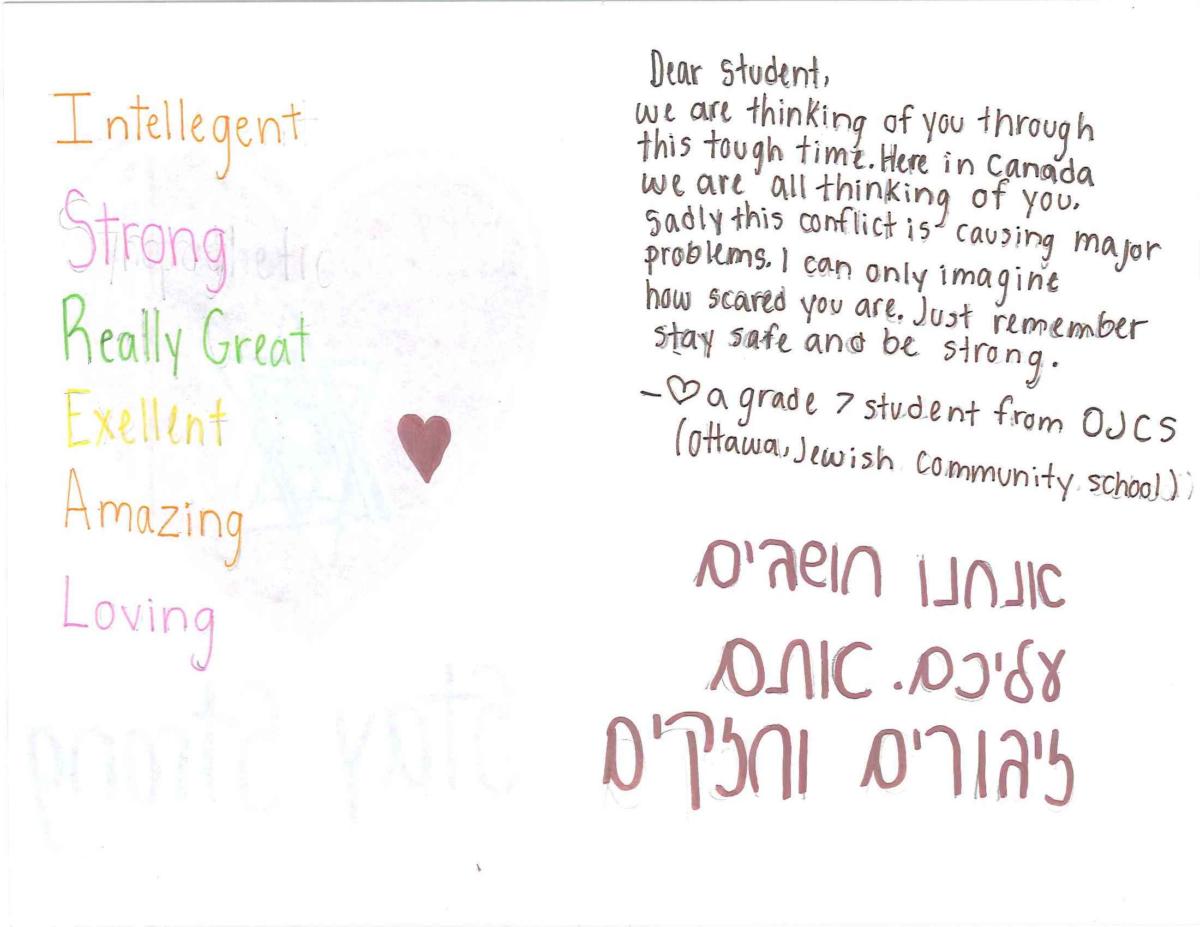 Intellegent
Strong
Really Great
Exellent
Amazing
Loving
Dear Student,
we are thinking of you through
this tough time. Here in Canada
we are all thinking of you.
Sadly this conflict is causing major
problems. I can only imagine
how scared you are. Just remember
stay safe and be strong.
-♡ a grade 7 student from OJCS
(Ottawa, Jewish Community school)
אנחנו חושבים
עליכם. אתם
גיבורים וחזקים